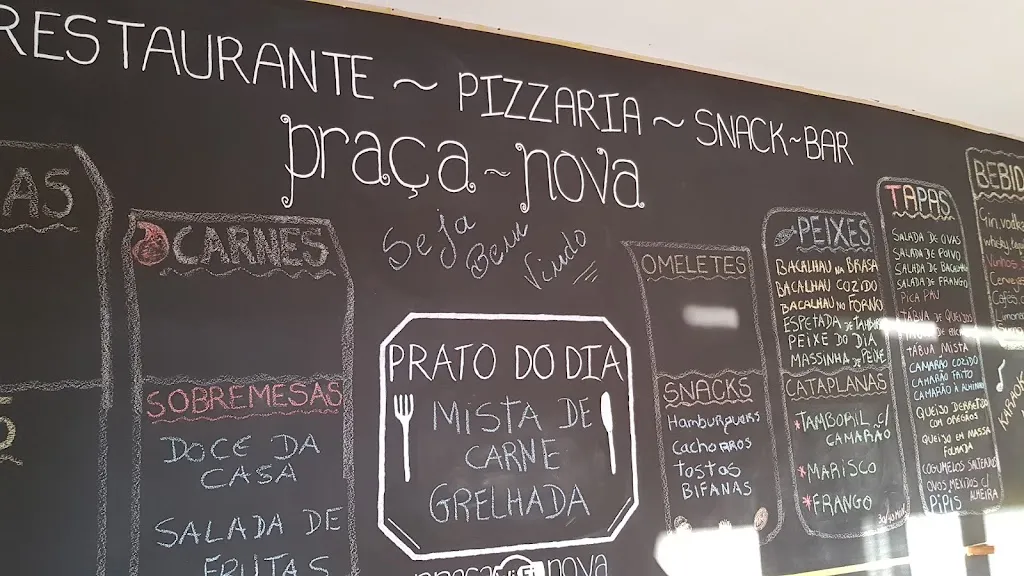 RESTAURANTE ~ PIZZARIA ~ SNACK~BAR
praça ~ nova
Seja
Bem
Vindo
AS
CARNES
SOBREMESAS
DOCE DA
CASA
SALADA DE
FRUTAS
PRATO DO DIA
MISTA DE
CARNE
GRELHADA
praça nova
OMELETES
SNACKS
Hamburguers
Cachorros
Tostas
BIFANAS
PEIXES
BACALHAU NA BRASA
BACALHAU COZIDO
BACALHAU NO FORNO
ESPETADA DE
PEIXE DO DIA
MASSINHA DE PEIXE
CATAPLANAS
*TAMBORIL C/
CAMARÃO
*MARISCO
*FRANGO
TAPAS
SALADA DE OVAS
SALADA DE POLVO
SALADA DE BACALHAU
SALADA DE FRANGO
PICA PAU
TÁBUA DE QUEIJOS
TÁBUA DE
TÁBUA MISTA
CAMARÃO COZIDO
CAMARÃO FRITO
CAMARÃO À ALHINHO
QUEIJO DERRETIDO
COM OREGÃOS
QUEIJO EM MASSA
FOLHADA
COGUMELOS SALTEADOS
OVOS MEXIDOS C/
ALHEIRA
PIPIS
BEBID
Gin, vodka
whisky
Vinhos
Cerveja
Cafés
KARAOK